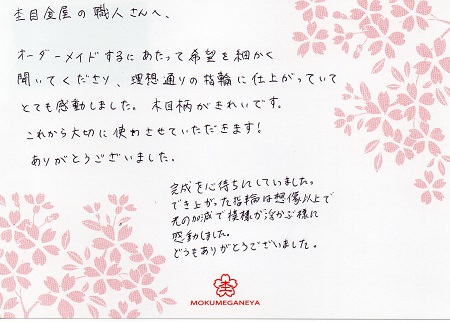 杢目金屋の職人さんへ、
オーダーメイドするにあたって希望を細かく
聞いてくださり、理想通りの指輪に仕上がっていて
とても感動しました。木目柄がきれいです。
これから大切に使わせていただきます!
ありがとうございました。
完成を心待ちにしていました。
でき上がった指輪は想像以上で
光の加減で模様が浮かぶ様に
感動しました。
どうもありがとうございました。
杢
MOKUMEGANEYA